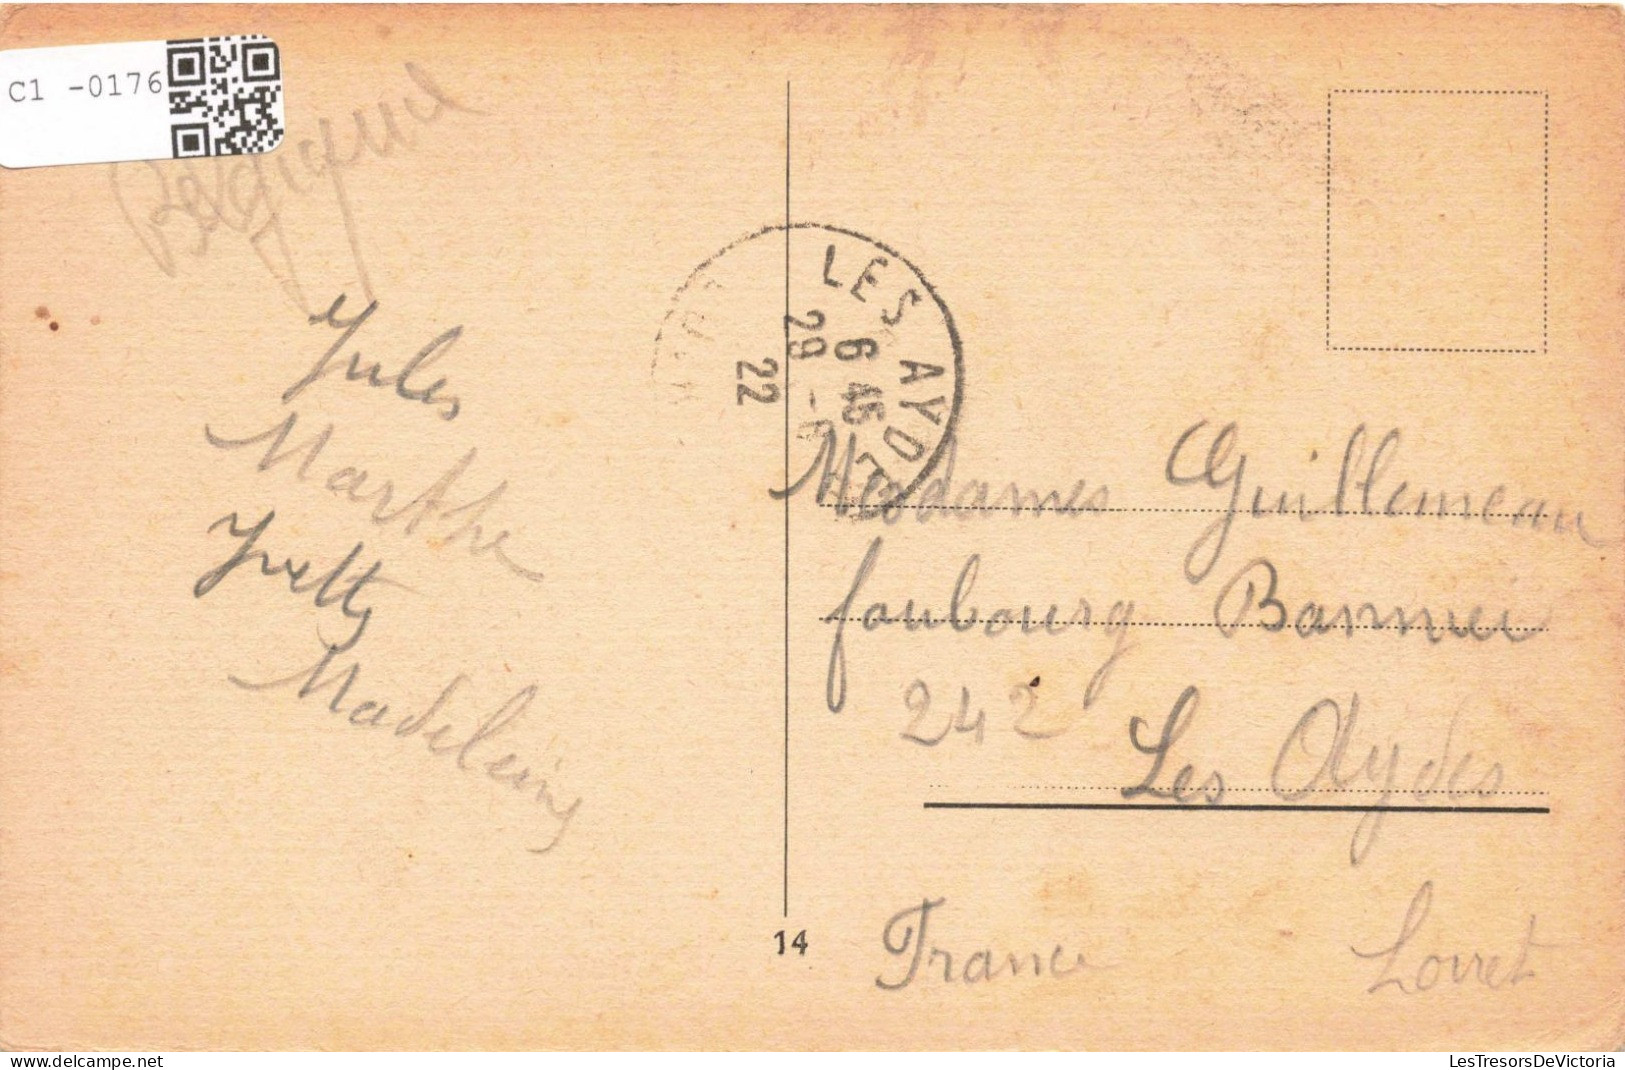 C1 -0176
Belgique
Jules
Marthe
Yvette
Madeleine
LES AYDES
6 45
29 -6
22
Mesdames Guillemeau
faubourg Bannier
242
Les Aydes
France Loiret
14
LesTresorsDeVictoria